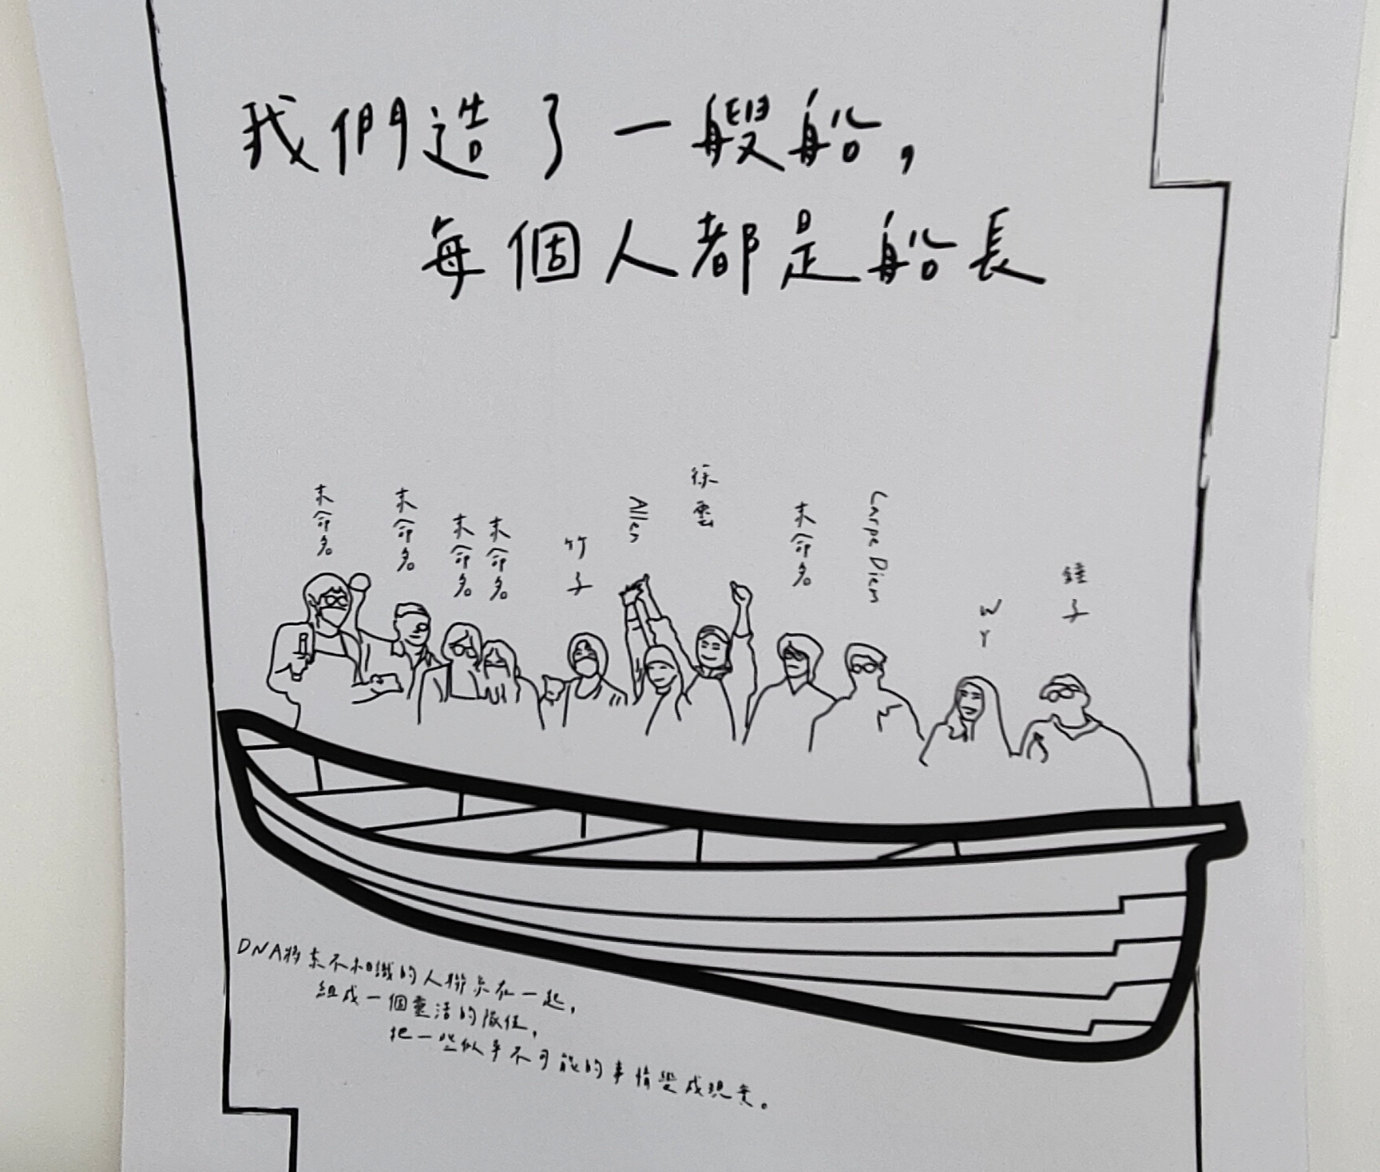 我們造了一艘船，
每個人都是船長
未命名
未命名
未命名
未命名
竹子
Allen
徐
未命名
Carpe Diem
WY
鍾子
DNA將素不相識的人聯系在一起，
組成一個靈活的隊伍，
把一些似乎不可能的事情變成現實。